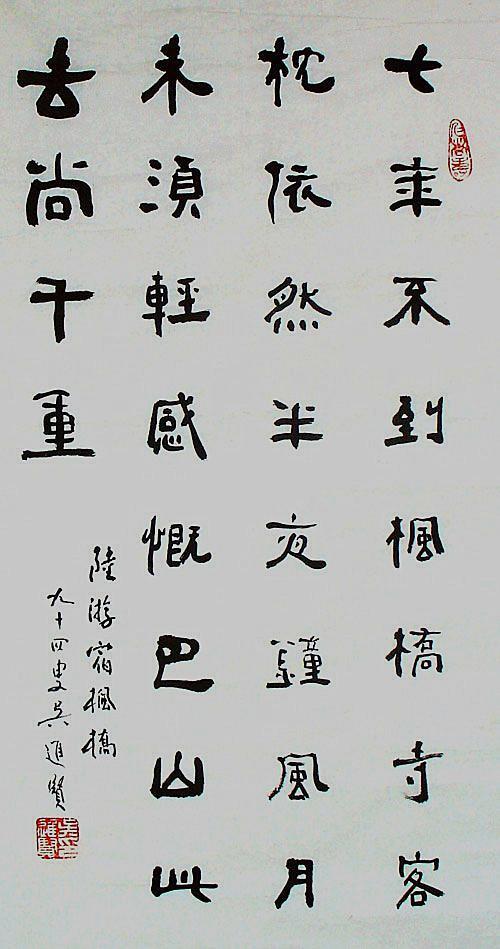 七年不到楓橋寺客
枕依然半夜鐘風月
未須輕感慨巴山此
去尚千重
陸游宿楓橋
九十四叟吳進賢